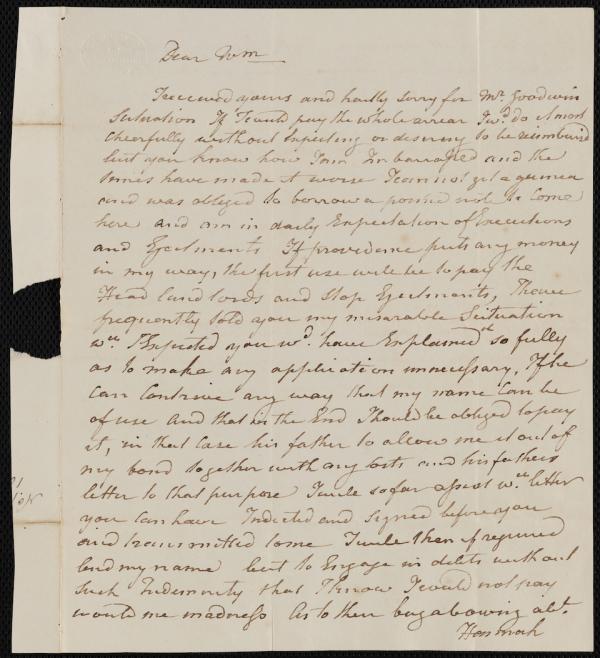 Dear Wm
I received yours and hartly sorry for Mr. Goodwin
Situation If I could pay the whole arrear I wd. do it most
cheerfully without Expecting or desiring to be reimbursed
but you know how I am Imbarrassed and the
times have made it worse I cannot get a guinea
and was obliged to borrow a pound note to come
here and am in daily Expectation of Executions
and Ejectments If providence puts any money
in my way, the first use will be to pay the
Head landlords and stop Ejectments, I have
frequently told you my miserable Scituation
wch I Expected you wd. have Explained so fully
as to make any application unnecessary, If he
can contrive any way that my name can be
of use and that in the End I should be obliged to pay
it, in that case his father to allow me it out of
my bond together with any Costs and his fathers
letter to that purpose I will so far assist wch letter
you can have Indicted and Signed before you
and transmitted to me I will then if required
lend my name but to Engage in debts without
such Indemnity that I know I could not pay
would me madness As to then bugabowing abt.
Hannah